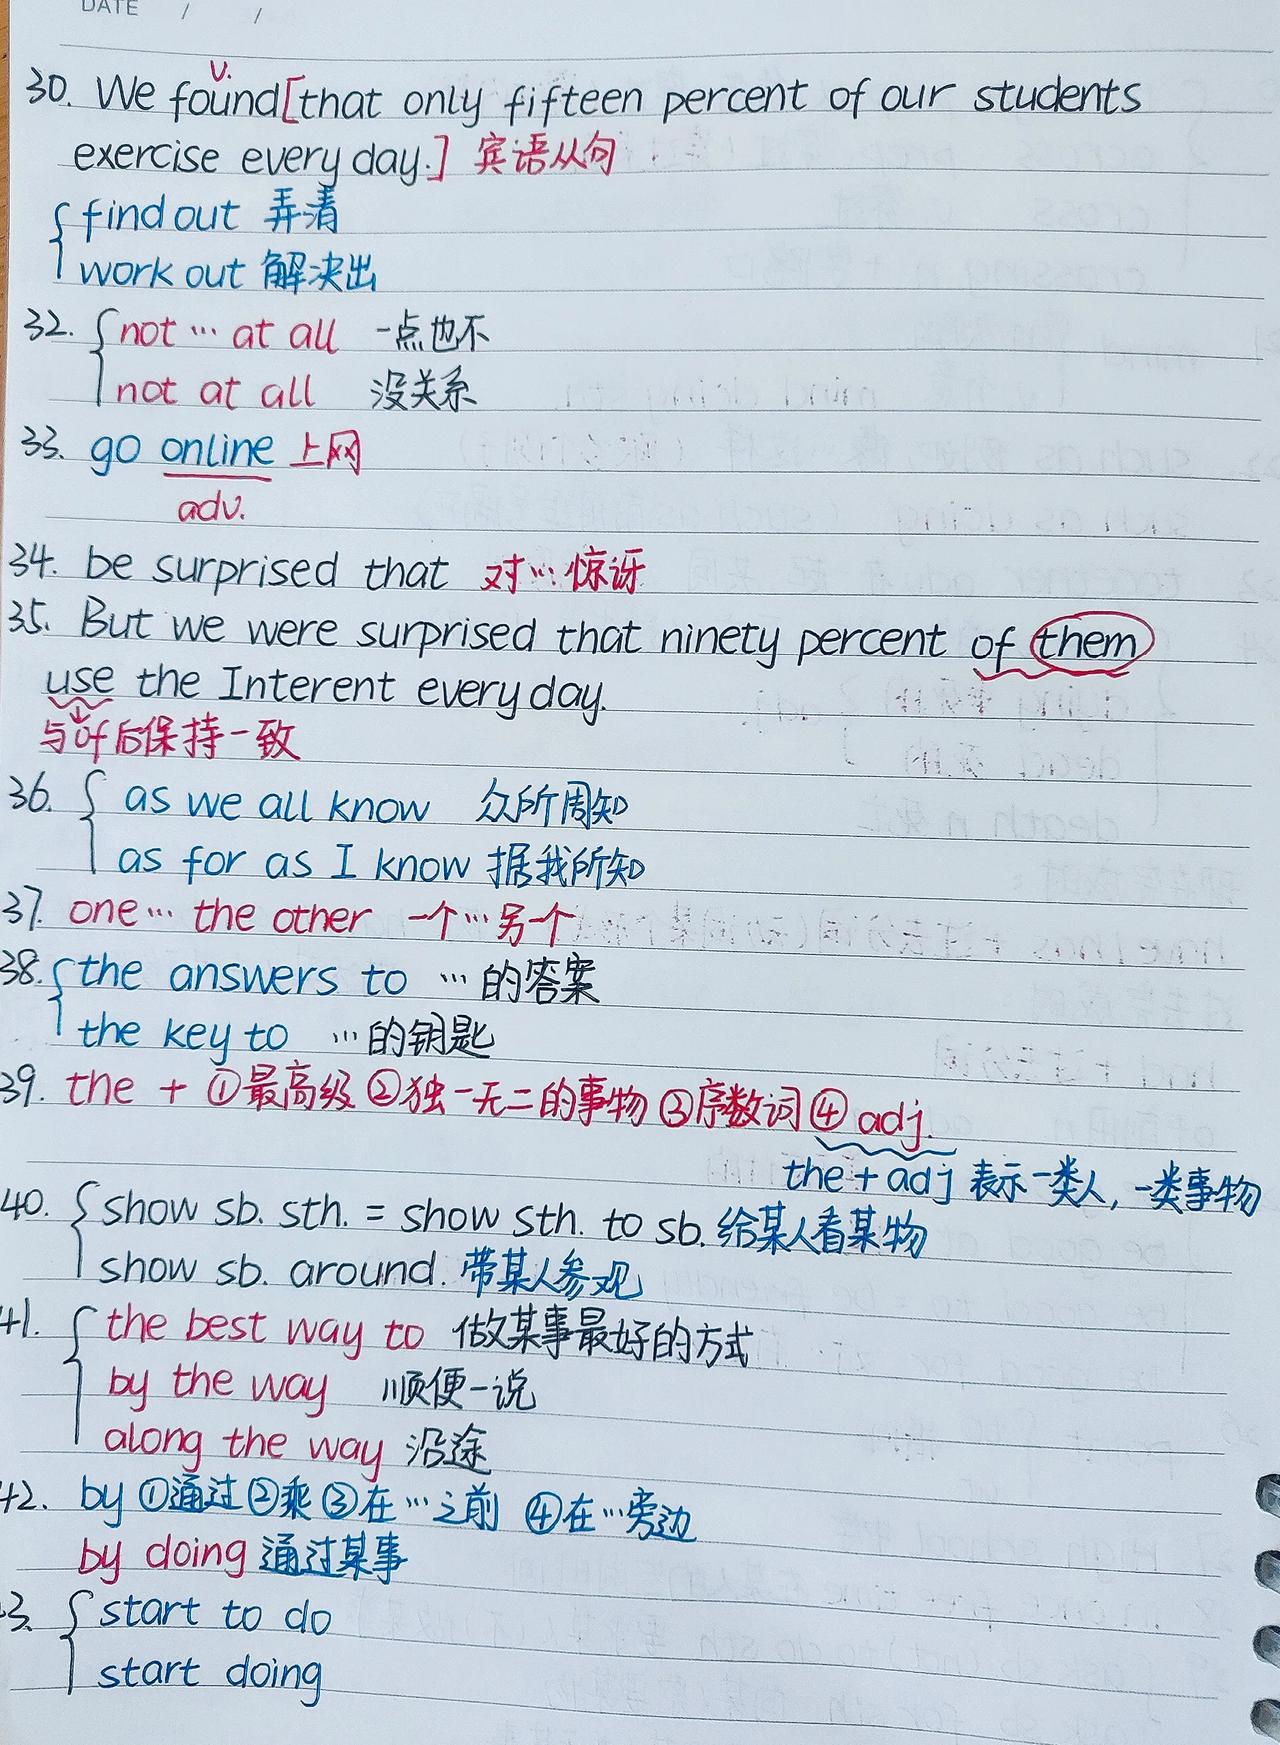 DATE / /
30. We found[that only fifteen percent of our students
v.
exercise every day.] 宾语从句
find out 弄清
work out 解决出
32. not … at all 一点也不
not at all 没关系
33. go online 上网
adv.
34. be surprised that 对…惊讶
35. But we were surprised that ninety percent of them
use the Interent every day.
与of后保持一致
36. as we all know 众所周知
as for as I know 据我所知
37. one… the other 一个…另个
38. the answers to …的答案
the key to …的钥匙
39. the + ①最高级 ②独一无二的事物 ③序数词 ④ adj.
the + adj 表示一类人, 一类事物
40. show sb. sth. = show sth. to sb. 给某人看某物
show sb. around. 带某人参观
41. the best way to 做某事最好的方式
by the way 顺便一说
along the way 沿途
42. by ①通过 ②乘 ③在…之前 ④在…旁边
by doing 通过某事
3. start to do
start doing